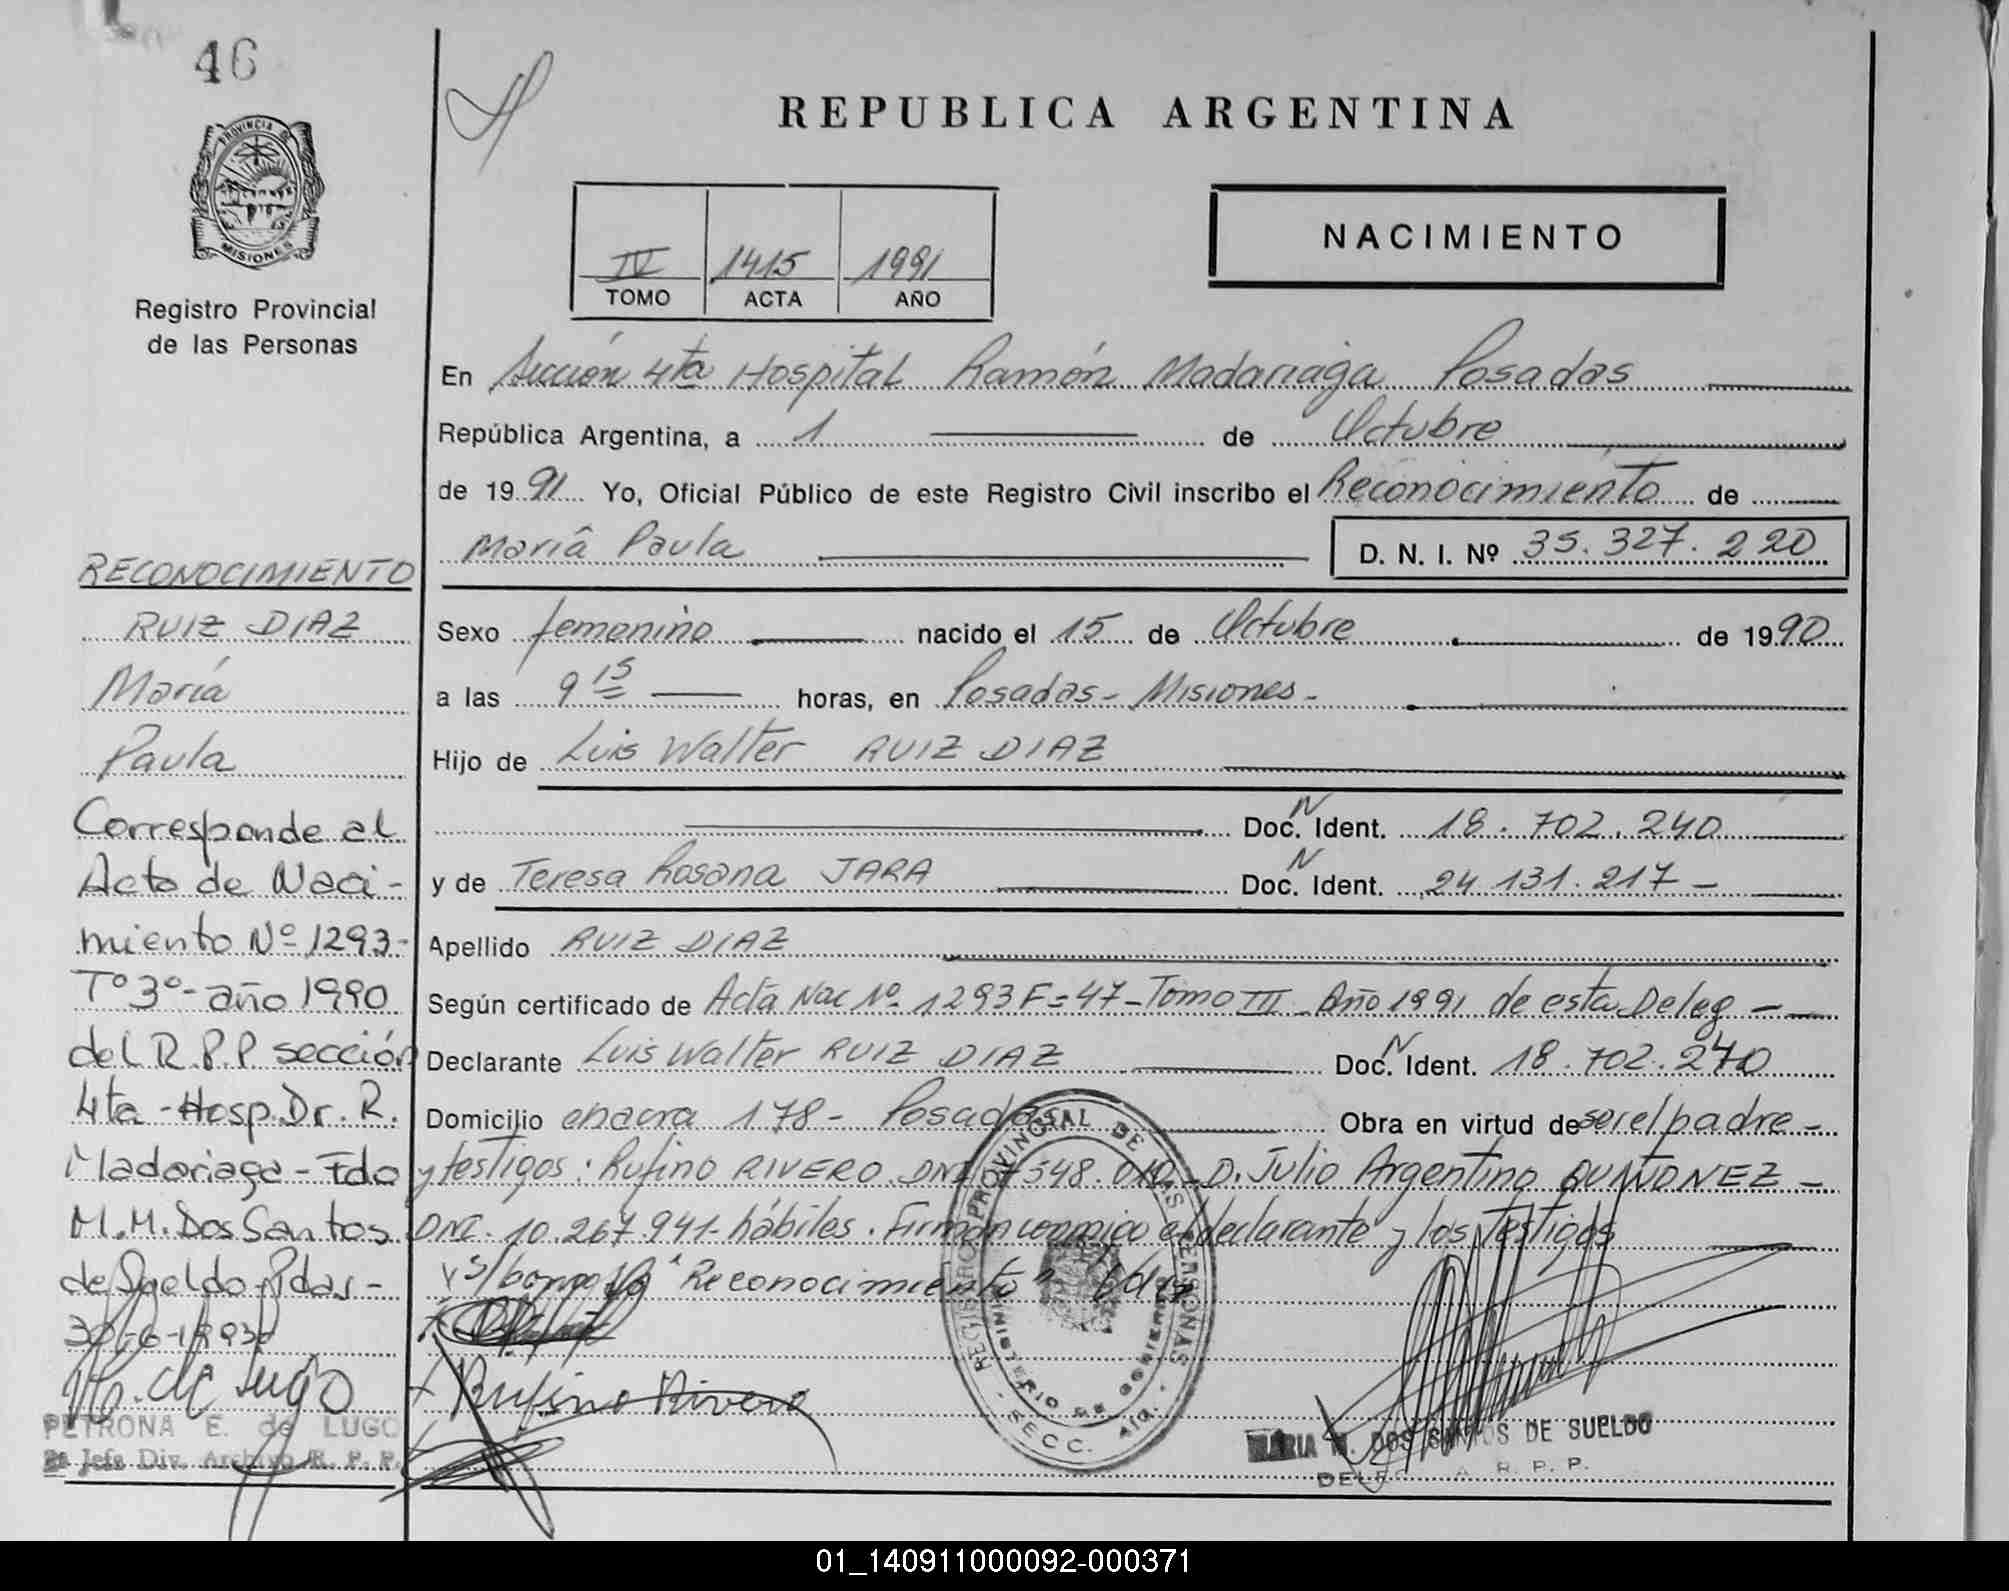 46
PROVINCIA DE
MISIONES
Registro Provincial
de las Personas
REPUBLICA ARGENTINA
IV 1415 1991
TOMO ACTA AÑO
NACIMIENTO
En Sección 4ta Hospital Ramón Madariaga Posadas
República Argentina, a 1 de Octubre
de 1991 Yo, Oficial Público de este Registro Civil inscribo el Reconocimiento de
María Paula D. N. I. Nº 35.327.220
Sexo femenino nacido el 15 de Octubre de 1990
a las 9 15 horas, en Posadas - Misiones -
Hijo de Luis Walter RUIZ DIAZ
Doc. N Ident. 18.702.240
y de Teresa Rosana JARA Doc. N Ident. 24 131.217 -
Apellido RUIZ DIAZ
Según certificado de Acta Nac Nº 1293 F=47 - Tomo III - Año 1991 de esta Deleg -
Declarante Luis Walter RUIZ DIAZ Doc. N Ident. 18.702.240
Domicilio 178 - Posadas Obra en virtud de ser el padre -
y testigos: Rufino RIVERO DNI 548. D. Julio Argentino QUIÑONEZ -
DNI. 10.267.941 - hábiles. Firman conmigo el declarante y los testigos
"Reconocimiento" Vale
Rufino Rivero
RECONOCIMIENTO
RUIZ DIAZ
María
Paula
Corresponde al
Acta de Naci-
miento Nº 1293-
Tº 3º - año 1990
del R.P.P. sección
4ta - Hosp. Dr. R.
Madariaga - Fdo
M.M. Dos Santos
de Sueldo - Pdas -
30-6-1993
PETRONA E. de LUGO
Jefe Div. Archivo R. P. P.
REGISTRO PROVINCIAL DE LAS PERSONAS
MINISTERIO DE GOBIERNO
SECC. 4ta.
MARIA M. DOS SANTOS DE SUELDO
R. P. P.
01_140911000092-000371